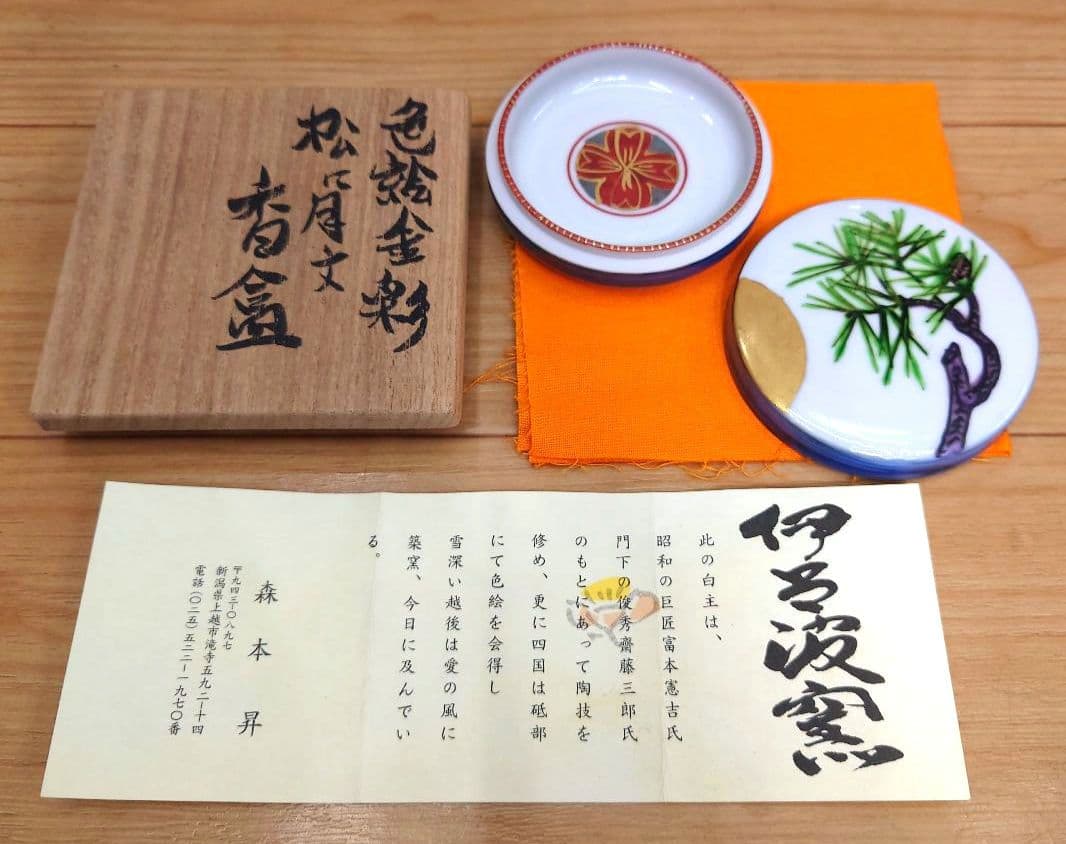 色絵金彩
松に月文
香盒
伊呂波窯
此の白主は、
昭和の巨匠富本憲吉氏
門下の俊秀齋藤三郎氏
のもとにあって陶技を
修め、更に四国は砥部
にて色絵を会得し
雪深い越後は愛の風に
築窯、今日に及んでい
る。
森本昇
〒九四三-〇八九七
新潟県上越市滝寺五九二-十四
電話(〇二五)五二二-一九七〇番